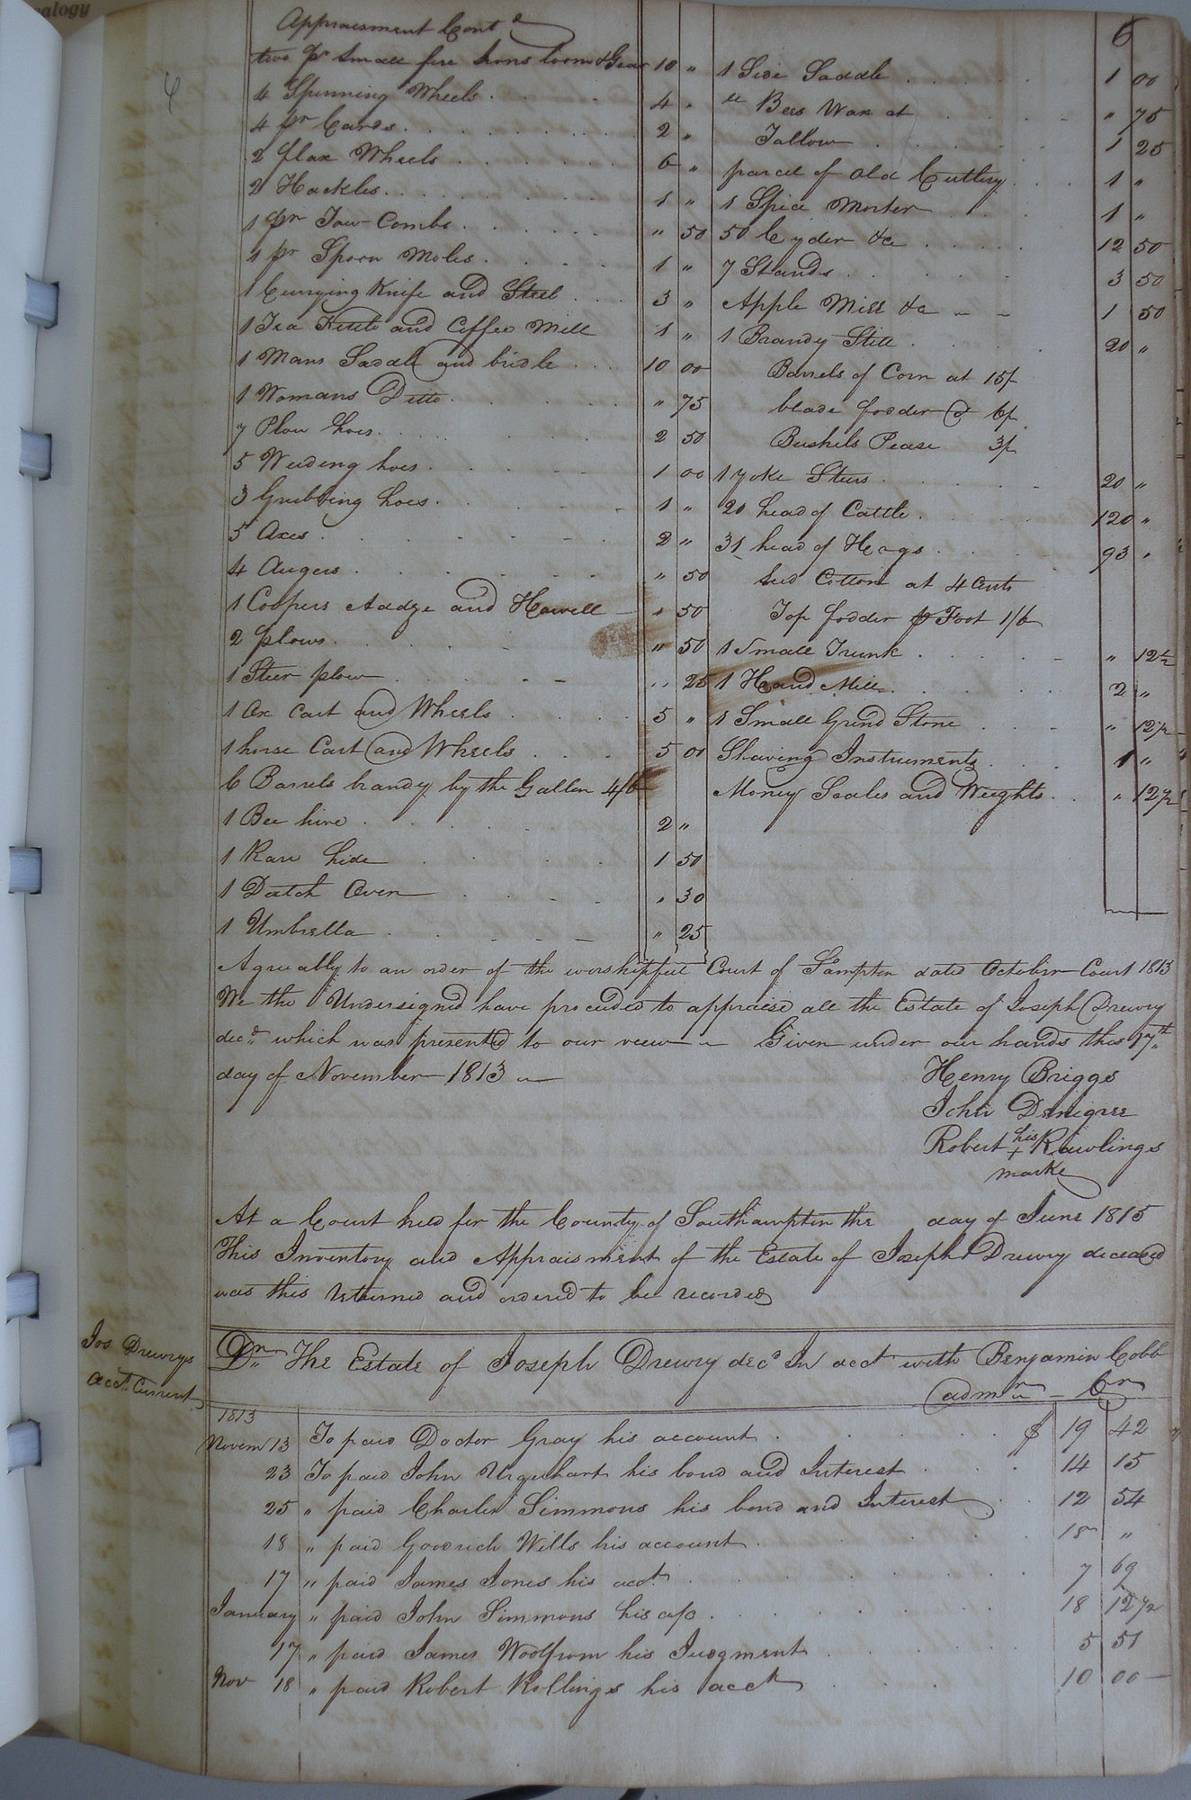 alogy
6
Appraisment Contd
two pr small fire Irons loom & Gear 10 "
4 Spinning Wheels 4 "
4 pr Cards 2 "
2 flax Wheels 6 "
2 Hackles 1 "
1 pr Tow Combs " 50
1 pr Spoon Moles 1 "
1 Currying Knife and Steel 3 "
1 Tea Kettle and Coffee Mill 1 "
1 Mans Saddle and bridle 10 00
1 Womans Ditto " 75
7 Plow hoes 2 50
5 Weeding hoes 1 00
3 Grubbing hoes 1 "
5 Axes 2 "
4 Augers " 50
1 Coopers Addze and Howell " 50
2 plows " 50
1 Steer plow " 25
1 Ox Cart and Wheels 5 "
1 horse Cart and Wheels 5 00
6 Barrels brandy by the Gallon 4/6
1 Bee hive 2 "
1 Raw hide 1 50
1 Dutch Oven " 30
1 Umbrella " 25
1 Side Saddle 1 00
Bees Wax at " 75
Tallow 1 25
parcel of old Cutlery 1 "
1 Spice Morter 1 "
50 Cyder &c 12 50
7 Stands 3 50
Apple Mill &c 1 50
1 Brandy Still 20 "
Barrels of Corn at 15/
blade fodder @ 6/
Bushels Pease 3/
1 yoke Steers 20 "
20 head of Cattle 120 "
31 head of Hogs 93 "
Seed Cotton at 4 Cents
Top fodder p Foot 1/6
1 Small Trunk " 12½
1 Hand Mill 2 "
1 Small Grind Stone " 12½
Shaving Instruments 1 "
Money Scales and Weights " 12½
Agreeably to an order of the worshipful Court of S.ampton dated October Court 1813
We the Undersigned have proceeded to appraise all the Estate of Joseph Drewry
decd which was presented to our view Given under our hands this 17th
day of November 1813
Henry Briggs
John
Robert his + Rawlings
marke
At a Court held for the County of Southampton the day of June 1815
This Inventory and Appraisment of the Estate of Joseph Drewry deceased
was this returned and ordered to be recorded
Jos Drewrys
acct Current
Dr The Estate of Joseph Drewry decd In acct with Benjamin Cobb
admr Cr
1813
Novem 13 To paid Doctor Gray his account $ 19 42
23 To paid John Urquhart his bond and Interest 14 15
25 " paid Charles Simmons his bond and Interest 12 54
18 " paid Goodrich Wills his account 18 "
17 " paid James Jones his acct 7 69
January " paid John Simmons his a/c 18 12½
17 " paid James Woolfrom his Judgment 5 51
Nov 18 " paid Robert Rollings his acct 10 00